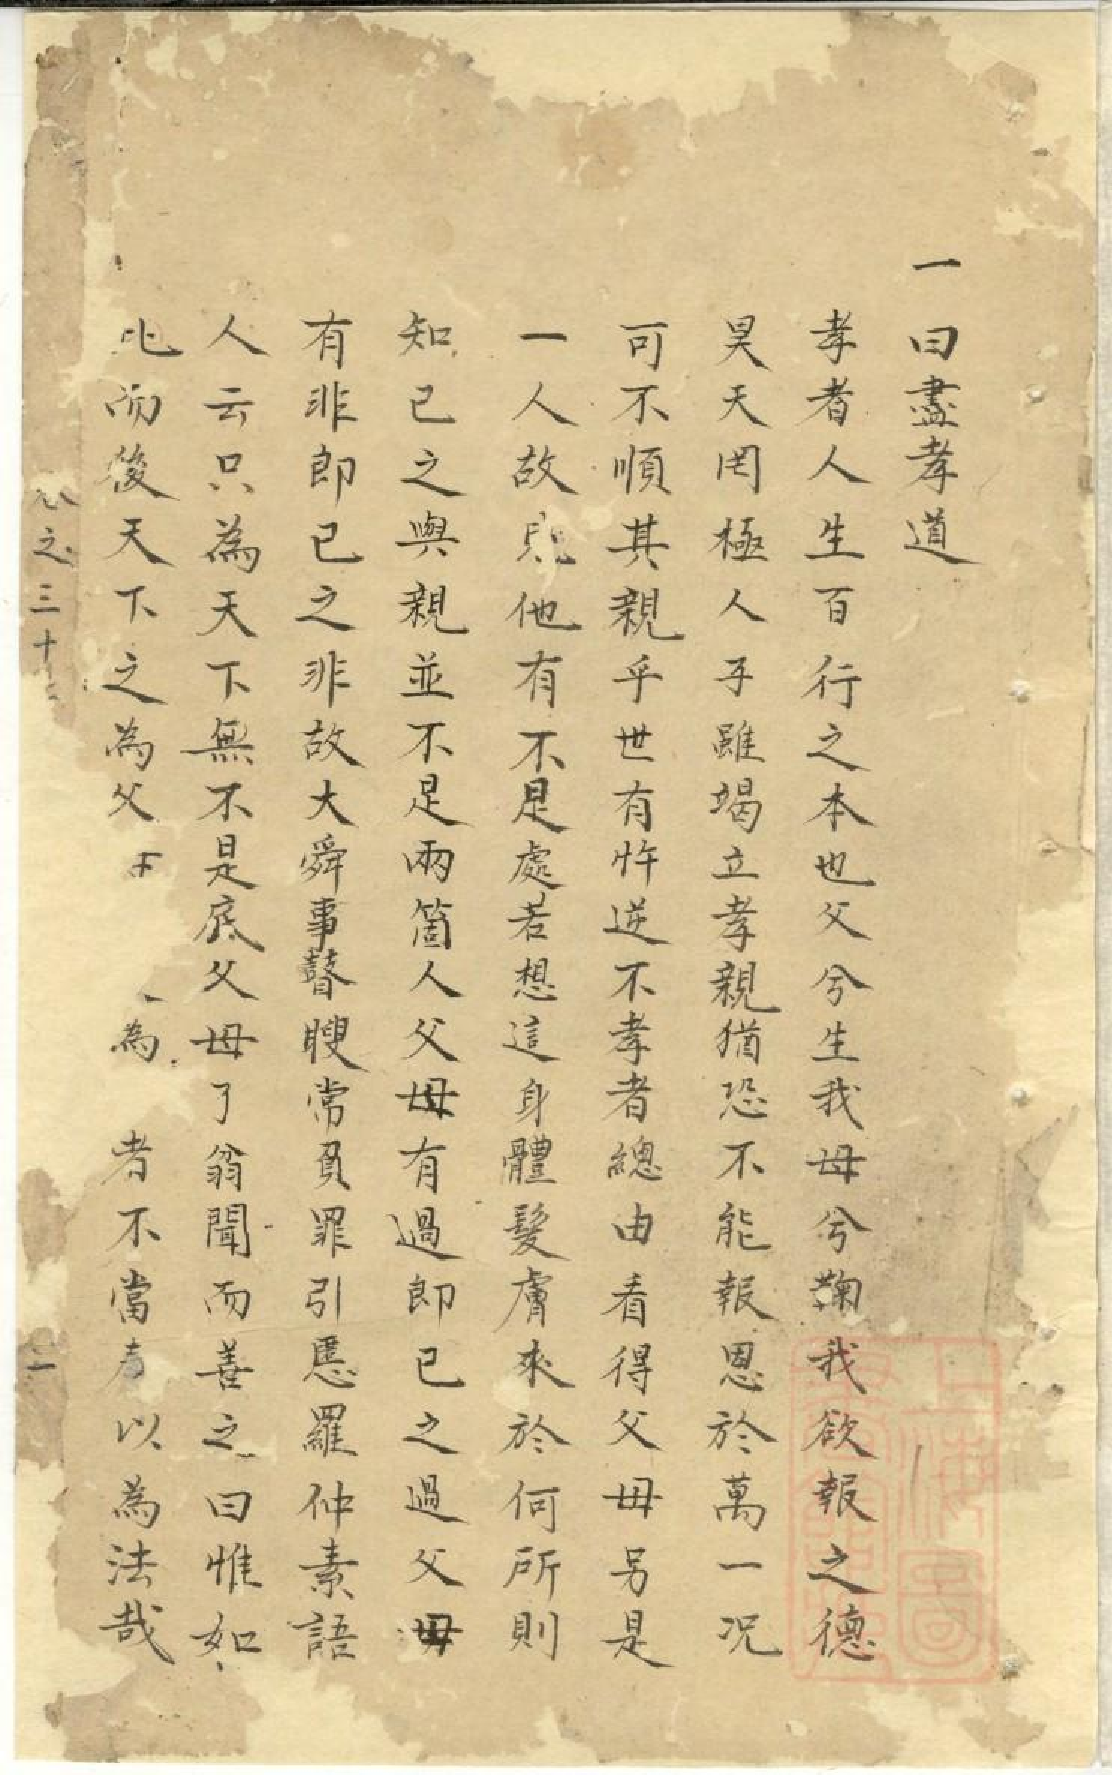 一曰盡孝道
孝者人生百行之本也父兮生我母兮鞠我欲報之德
昊天罔極人子雖竭立孝親猶恐不能報恩於萬一况
可不順其親乎世有忤逆不孝者總由看得父母另是
一人故見他有不是處若想這身體髮膚來於何所則
知己之與親並不是兩箇人父母有過即已之過父母
有非即已之非故大舜事瞽瞍常負罪引慝羅仲素語
人云只為天下無不是底父母了翁聞而善之曰惟如
此而後天下之為父子為者不當以為法哉
之三十
一
上海圖書館藏